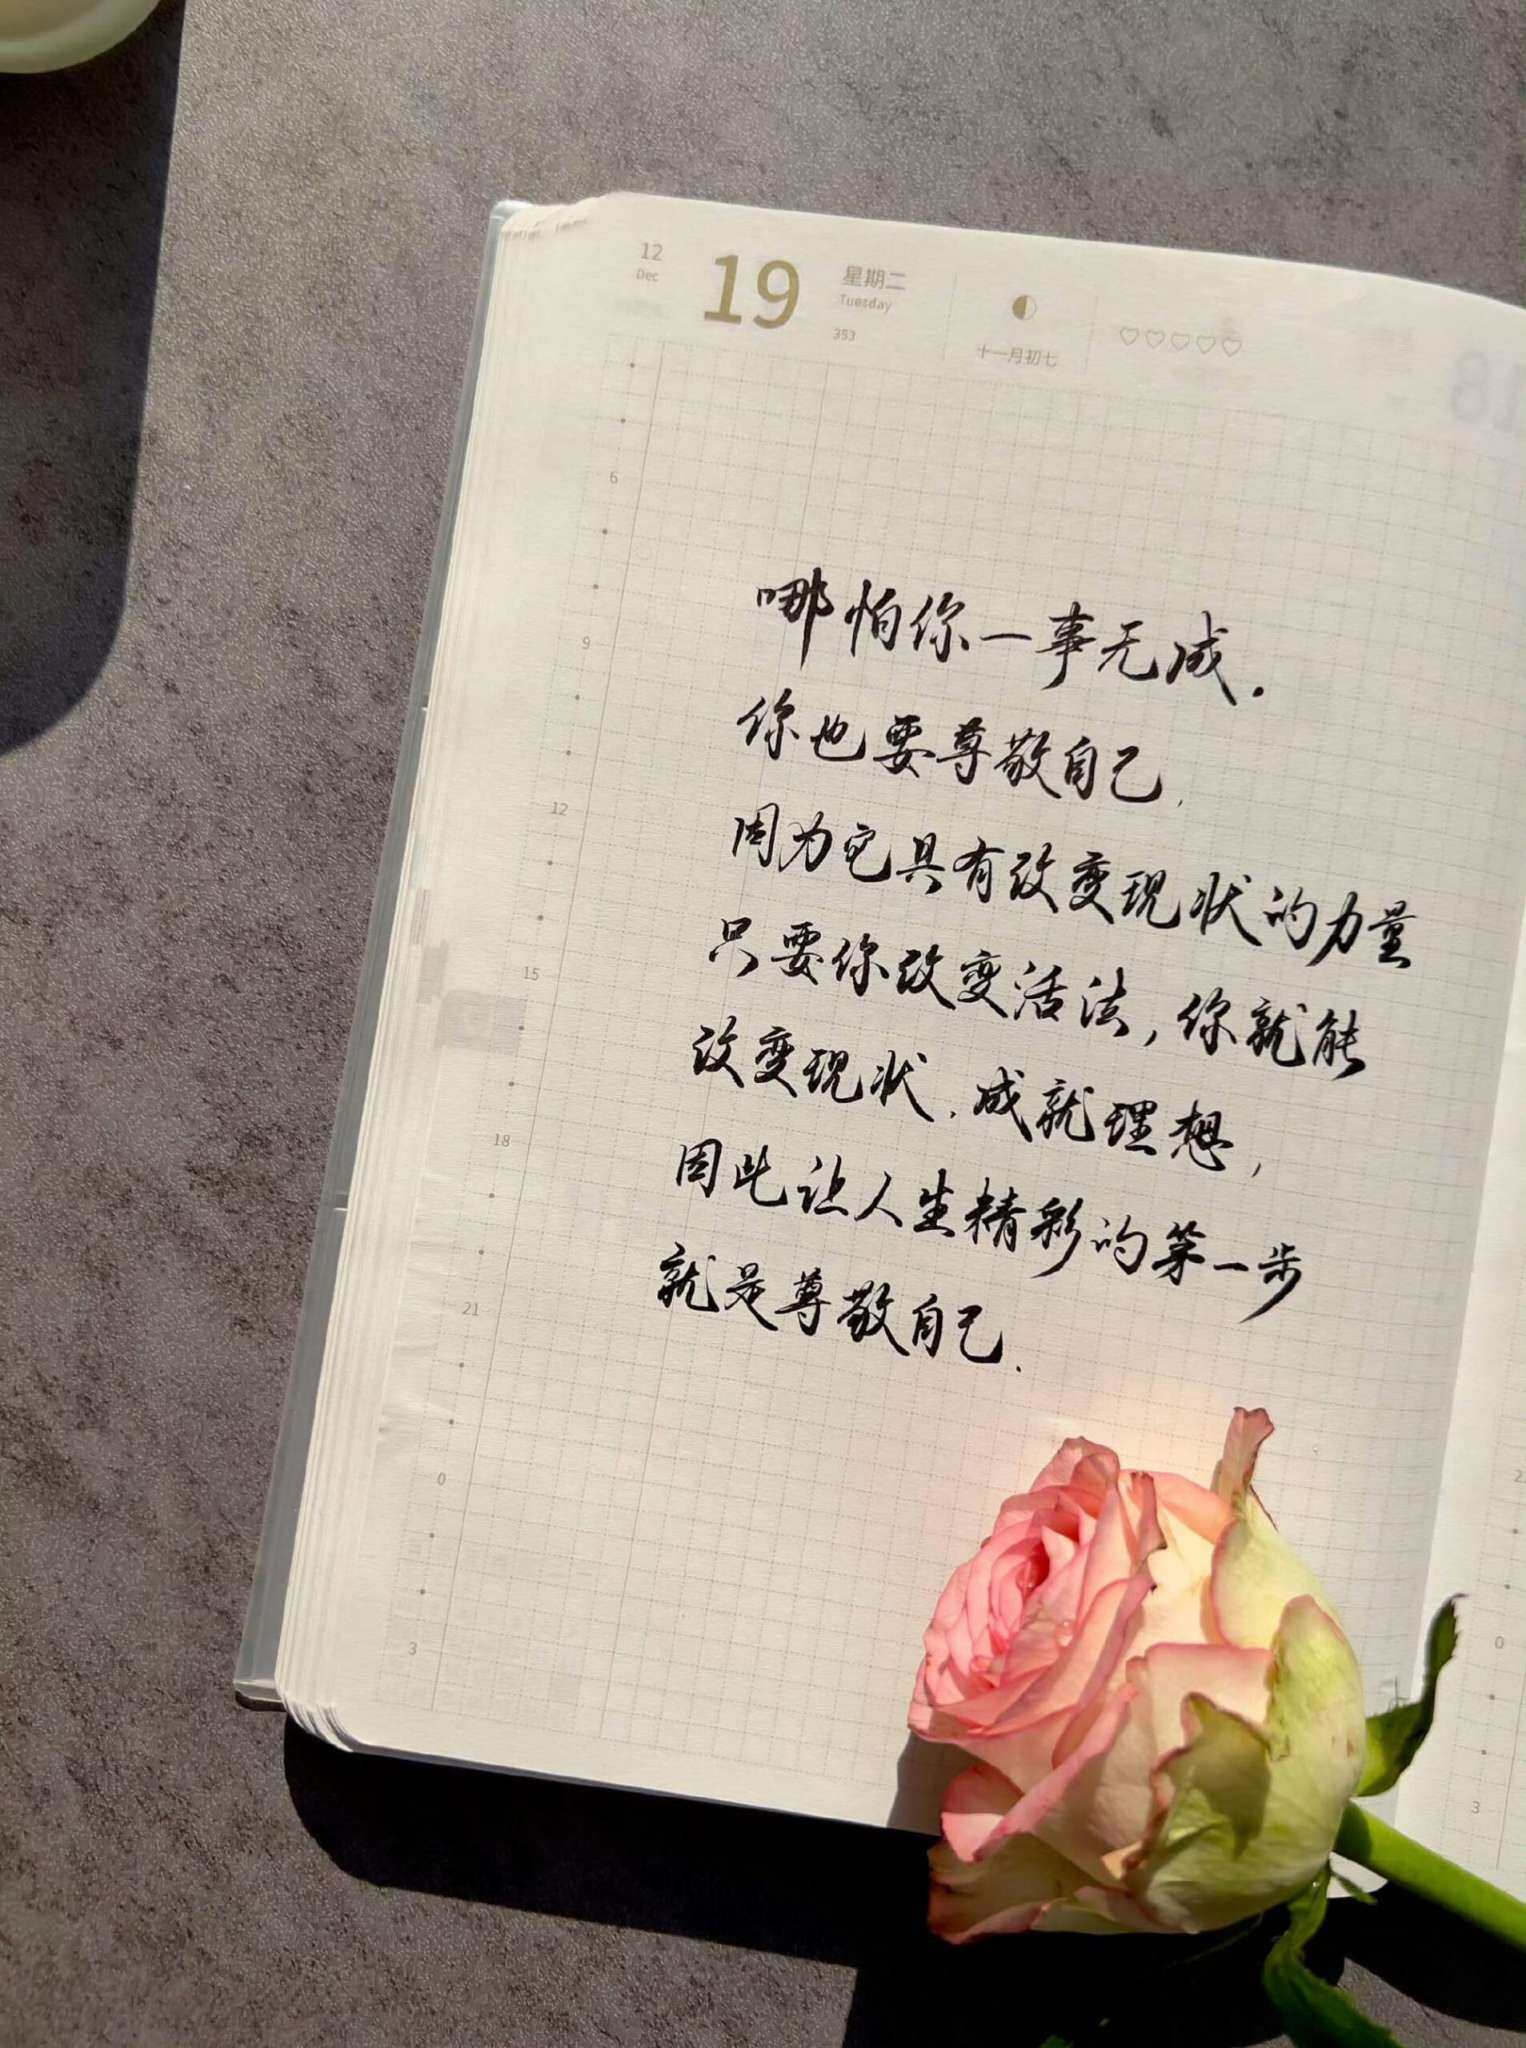 12
Dec
19
星期二
Tuesday
353
十一月初七
18
6
9
12
15
18
21
0
3
哪怕你一事无成.
你也要尊敬自己.
因为它具有改变现状的力量
只要你改变活法,你就能
改变现状.成就理想,
因此让人生精彩的第一步
就是尊敬自己.
0
3